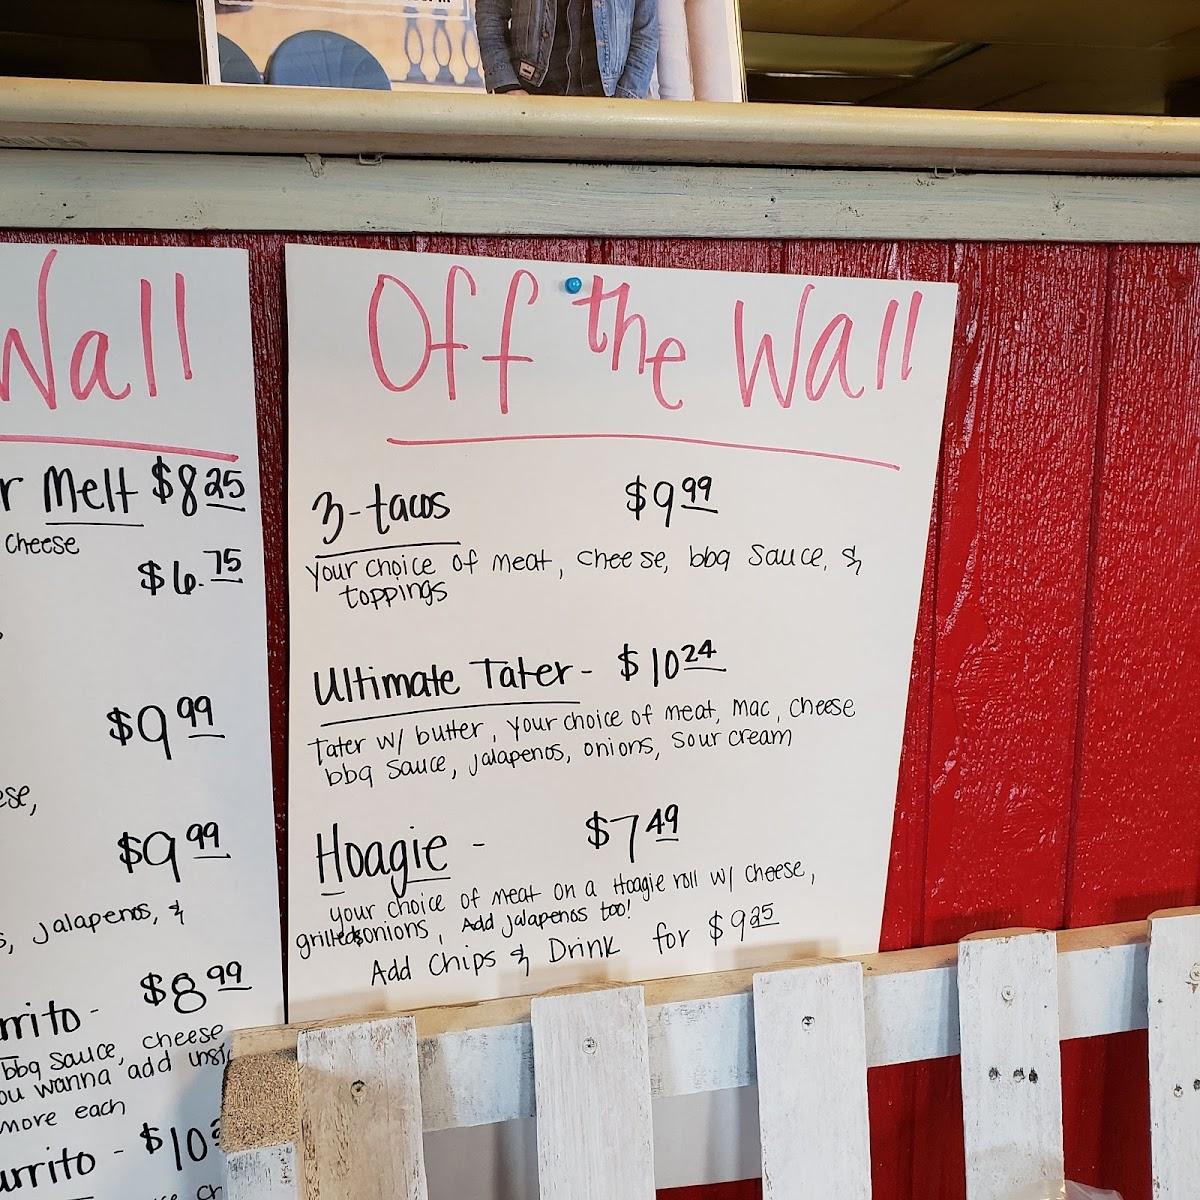 Wall
r Melt $8.25
cheese
$6.75
$9.99
ese,
$9.99
s, jalapenos, &
rrito - $8.99
bbq sauce, cheese
ou wanna add
more each
urrito - $10
Off the Wall
3-tacos $9.99
your choice of meat, cheese, bbq sauce, &
toppings
Ultimate Tater - $10.24
Tater w/ butter, your choice of meat, mac, cheese
bbq sauce, jalapenos, onions, sour cream
Hoagie - $7.49
your choice of meat on a Hoagie roll w/ cheese,
grilled onions, Add jalapenos too!
Add Chips & Drink for $9.25